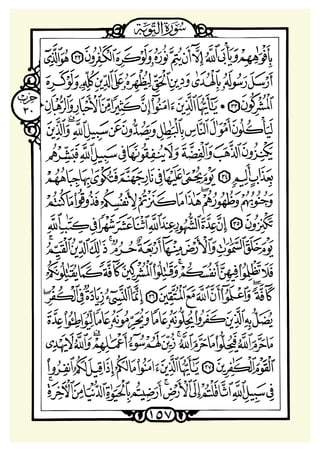 سُورَةُ التَّوْبَةِ
بِأَفْوَٰهِهِمْ وَيَأْبَى اللَّهُ إِلَّا أَنْ يُتِمَّ نُورَهُ وَلَوْ كَرِهَ الْكَٰفِرُونَ ٣٢ هُوَ الَّذِي
أَرْسَلَ رَسُولَهُ بِالْهُدَىٰ وَدِينِ الْحَقِّ لِيُظْهِرَهُ عَلَى الدِّينِ كُلِّهِ وَلَوْ كَرِهَ
الْمُشْرِكُونَ ٣٣ يَٰأَيُّهَا الَّذِينَ ءَامَنُوا إِنَّ كَثِيرًا مِنَ الْأَحْبَارِ وَالرُّهْبَانِ
لَيَأْكُلُونَ أَمْوَٰلَ النَّاسِ بِالْبَٰطِلِ وَيَصُدُّونَ عَنْ سَبِيلِ اللَّهِ وَالَّذِينَ
يَكْنِزُونَ الذَّهَبَ وَالْفِضَّةَ وَلَا يُنْفِقُونَهَا فِي سَبِيلِ اللَّهِ فَبَشِّرْهُمْ
بِعَذَابٍ أَلِيمٍ ٣٤ يَوْمَ يُحْمَىٰ عَلَيْهَا فِي نَارِ جَهَنَّمَ فَتُكْوَىٰ بِهَا جِبَاهُهُمْ
وَجُنُوبُهُمْ وَظُهُورُهُمْ هَٰذَا مَا كَنَزْتُمْ لِأَنْفُسِكُمْ فَذُوقُوا مَا كُنْتُمْ
تَكْنِزُونَ ٣٥ إِنَّ عِدَّةَ الشُّهُورِ عِنْدَ اللَّهِ اثْنَا عَشَرَ شَهْرًا فِي كِتَٰبِ اللَّهِ
يَوْمَ خَلَقَ السَّمَٰوَٰتِ وَالْأَرْضَ مِنْهَا أَرْبَعَةٌ حُرُمٌ ذَٰلِكَ الدِّينُ الْقَيِّمُ
فَلَا تَظْلِمُوا فِيهِنَّ أَنْفُسَكُمْ وَقَٰتِلُوا الْمُشْرِكِينَ كَافَّةً كَمَا يُقَٰتِلُونَكُمْ
كَافَّةً وَاعْلَمُوا أَنَّ اللَّهَ مَعَ الْمُتَّقِينَ ٣٦ إِنَّمَا النَّسِيءُ زِيَادَةٌ فِي الْكُفْرِ
يُضَلُّ بِهِ الَّذِينَ كَفَرُوا يُحِلُّونَهُ عَامًا وَيُحَرِّمُونَهُ عَامًا لِيُوَاطِئُوا عِدَّةَ
مَا حَرَّمَ اللَّهُ فَيُحِلُّوا مَا حَرَّمَ اللَّهُ زُيِّنَ لَهُمْ سُوءُ أَعْمَٰلِهِمْ وَاللَّهُ لَا يَهْدِي
الْقَوْمَ الْكَٰفِرِينَ ٣٧ يَٰأَيُّهَا الَّذِينَ ءَامَنُوا مَا لَكُمْ إِذَا قِيلَ لَكُمُ انْفِرُوا
فِي سَبِيلِ اللَّهِ اثَّاقَلْتُمْ إِلَى الْأَرْضِ أَرَضِيتُمْ بِالْحَيَوٰةِ الدُّنْيَا مِنَ الْءَاخِرَةِ
حزب
٢٠
١٥٧